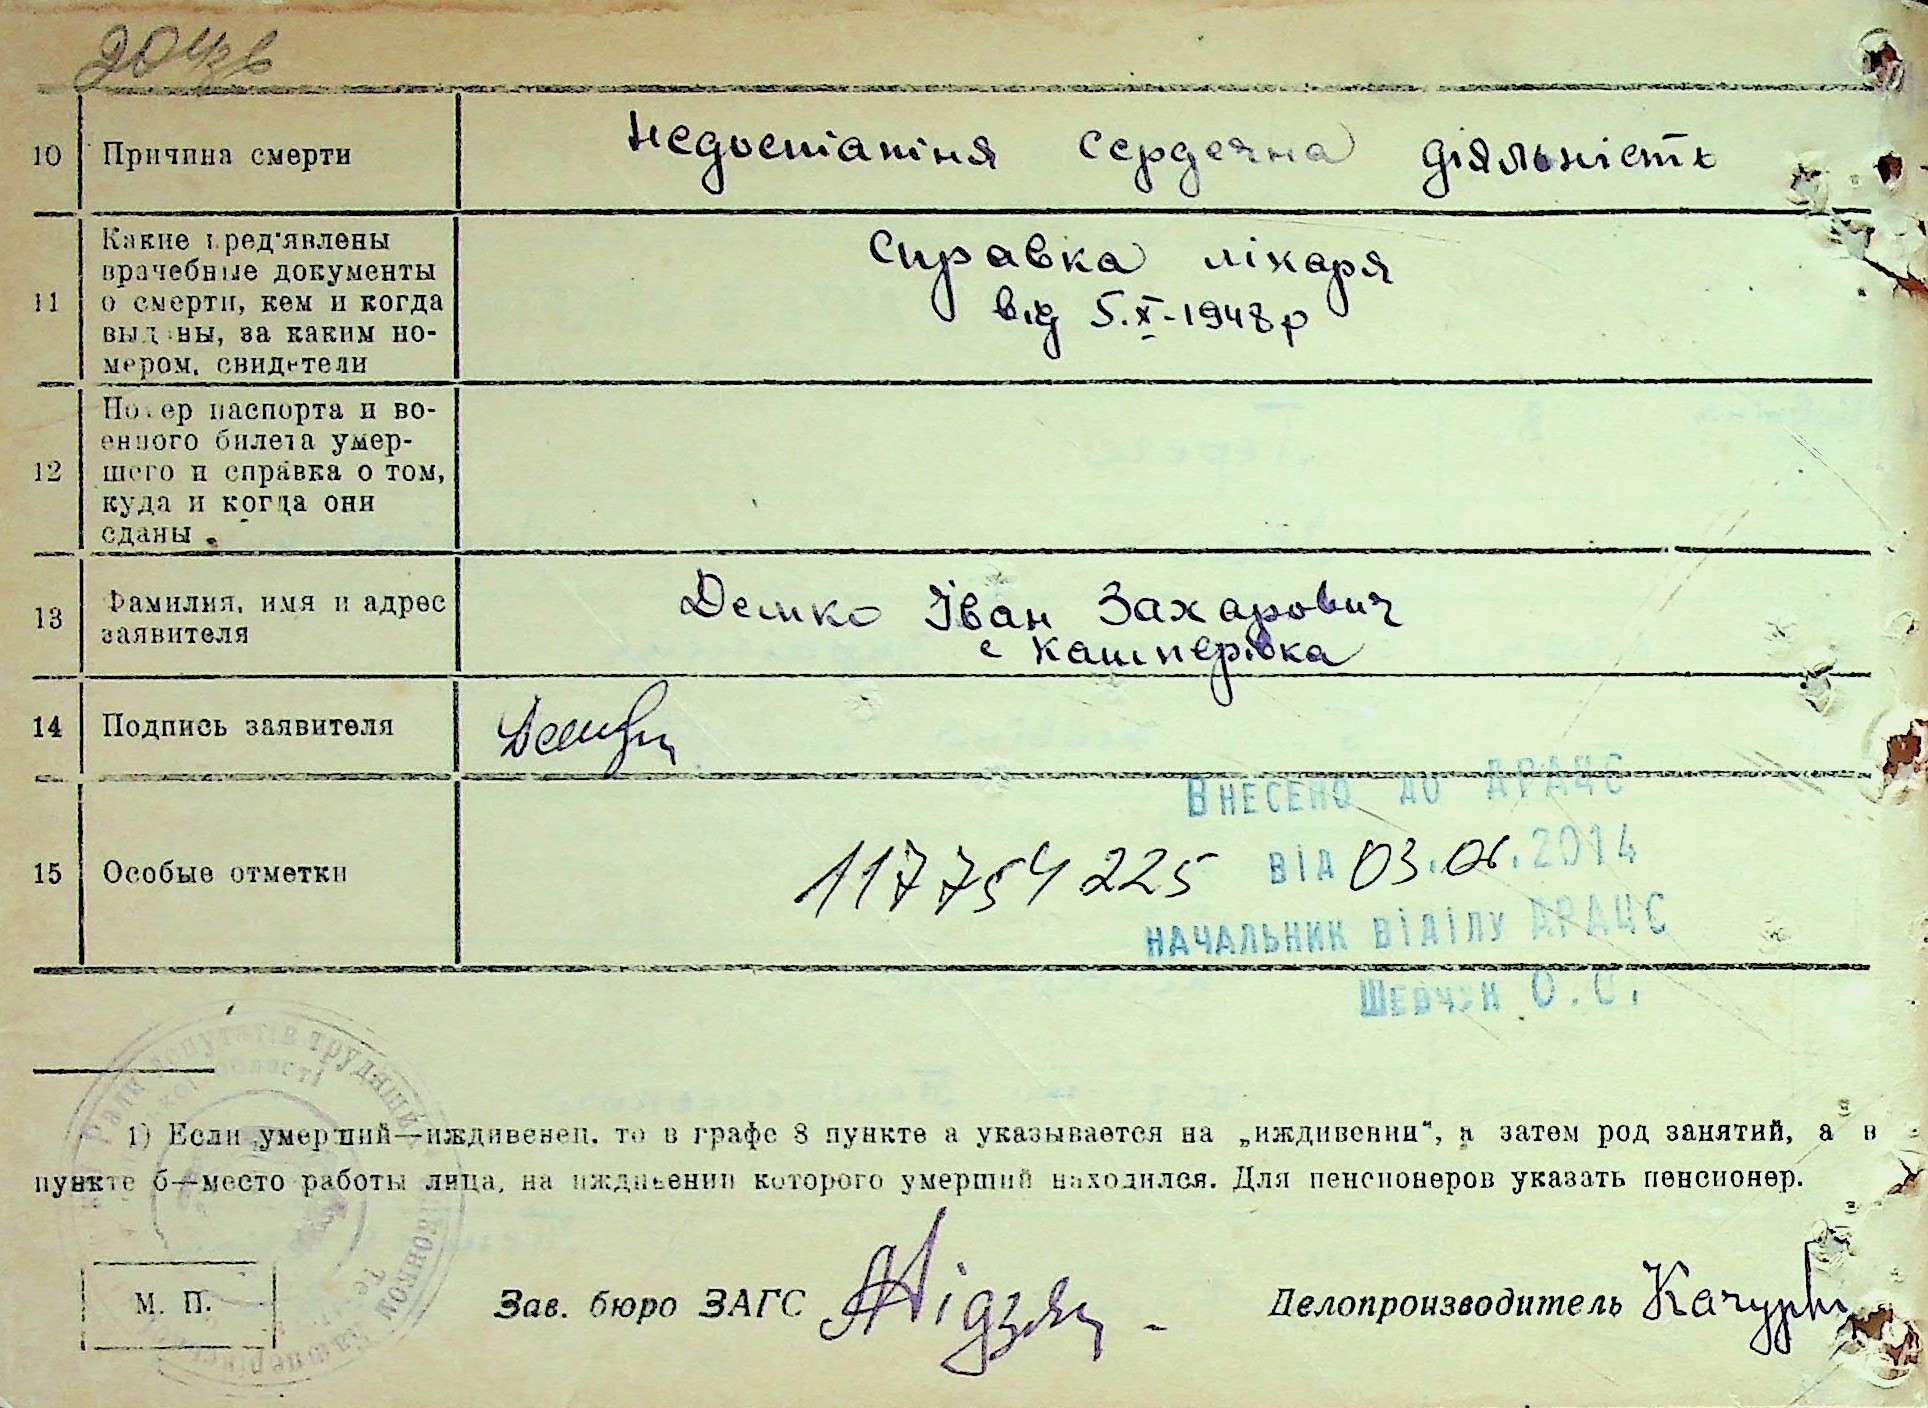 10 Причина смерти
недостатня сердечна діяльність
11 Какие пред'явлены
врачебные документы
о смерти, кем и когда
выданы, за каким но-
мером, свидетели
Справка лікаря
від 5.X-1948р
12 Номер паспорта и во-
енного билета умер-
шего и справка о том,
куда и когда они
сданы
13 Фамилия, имя и адрес
заявителя
Демко Іван Захарович
с Кашперівка
14 Подпись заявителя
15 Особые отметки
Внесено до ДРАЦС
117754225 від 03.06.2014
начальник відділу ДРАЦС
Шевчук О.С.
Ради депутатів трудящих
області
1) Если умерший—иждивенец, то в графе 8 пункте а указывается на „иждивении“, а затем род занятий, а в
пункте б—место работы лица, на иждивении которого умерший находился. Для пенсионеров указать пенсионер.
М. П.
Зав. бюро ЗАГС
Делопроизводитель